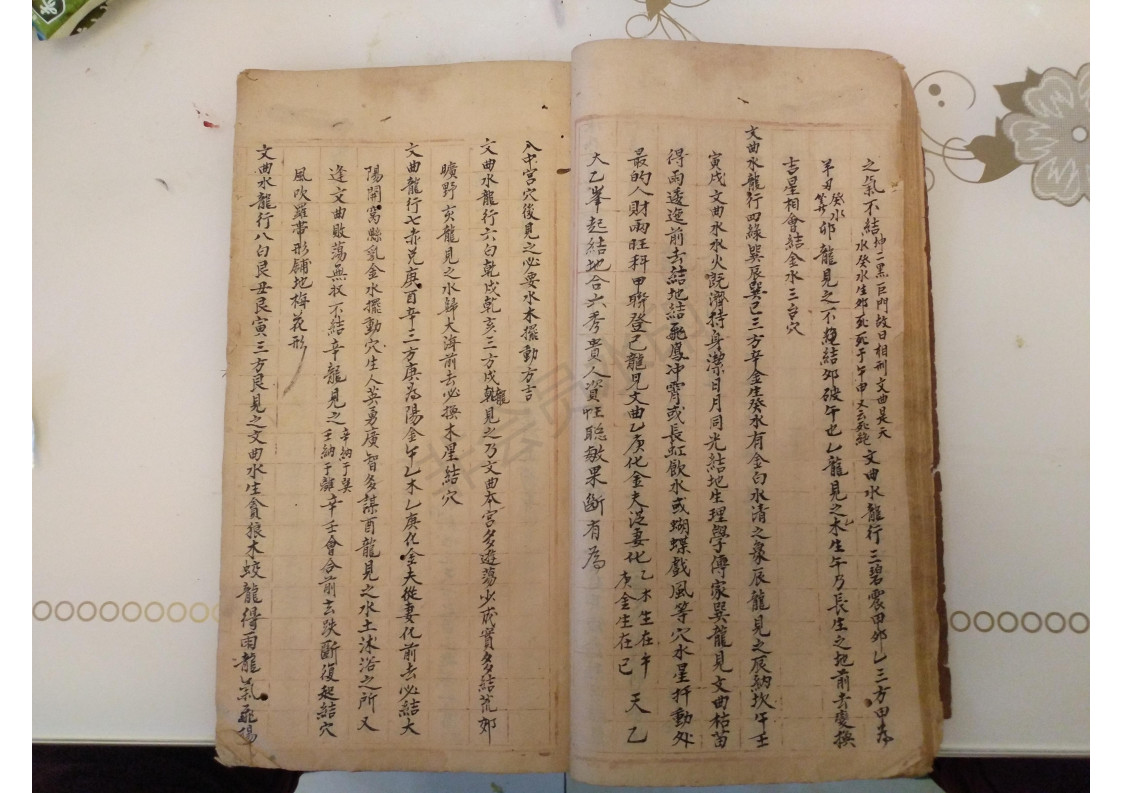 之氣不結坤二黑巨門故曰相刑文曲是天
水癸水生卯死死于午申又云死絕文曲水龍行三碧震甲卯乙三方甲
癸水
卯龍見之不結卯破午也乙龍見之乙木生午乃長生之地前去變換
吉星相會結金水三台穴
文曲水龍行四綠巽辰巽巳三方辛金生癸水有金白水清之象辰龍見之辰納坎午壬
寅戌文曲水水火既濟持身潔日月同光結地生理學傳家巽龍見文曲枯苗
得雨逶迤前去結地結飛鳳冲霄或長虹飲水或蝴蝶戲風等穴水星扦動处
最的人財兩旺科甲聯登巳龍見文曲乙庚化金夫從妻化乙木生在午
庚金生在巳
天乙
太乙峯起結地合六秀貴人資性聰敏果斷有為
入中宮穴後見之必要水木擺動方吉
文曲水龍行六白乾戌乾亥三方戌乾龍見之乃文曲本宮多遊蕩少成實多結荒郊
曠野亥龍見之水歸大海前去必換木星結穴
文曲龍行七赤兌庚酉辛三方庚為陽金午乙木乙庚化金夫從妻化前去必結大
陽開窩懸乳金水擺動穴生人英勇廣智多謀酉龍見之水土沐浴之所又
逢文曲敗蕩無收不結辛龍見之辛納于巽
壬納于離辛壬會合前去跌斷復起結穴
風吹羅帶形鋪地梅花形
文曲水龍行八白艮丑艮寅三方艮見之文曲水生貪狼木蛟龍得雨龍氣飛揚